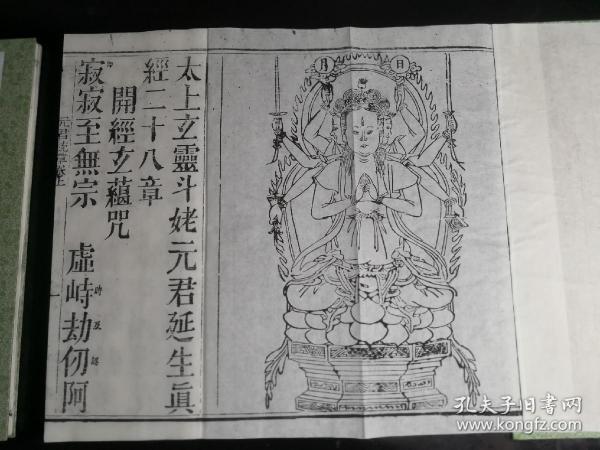 太上玄靈斗姥元君延生眞
經二十八章
開經玄蘊咒
寂寂至無宗 虛峙劫仞阿
月
日
孔夫子旧书网
www.kongfz.com